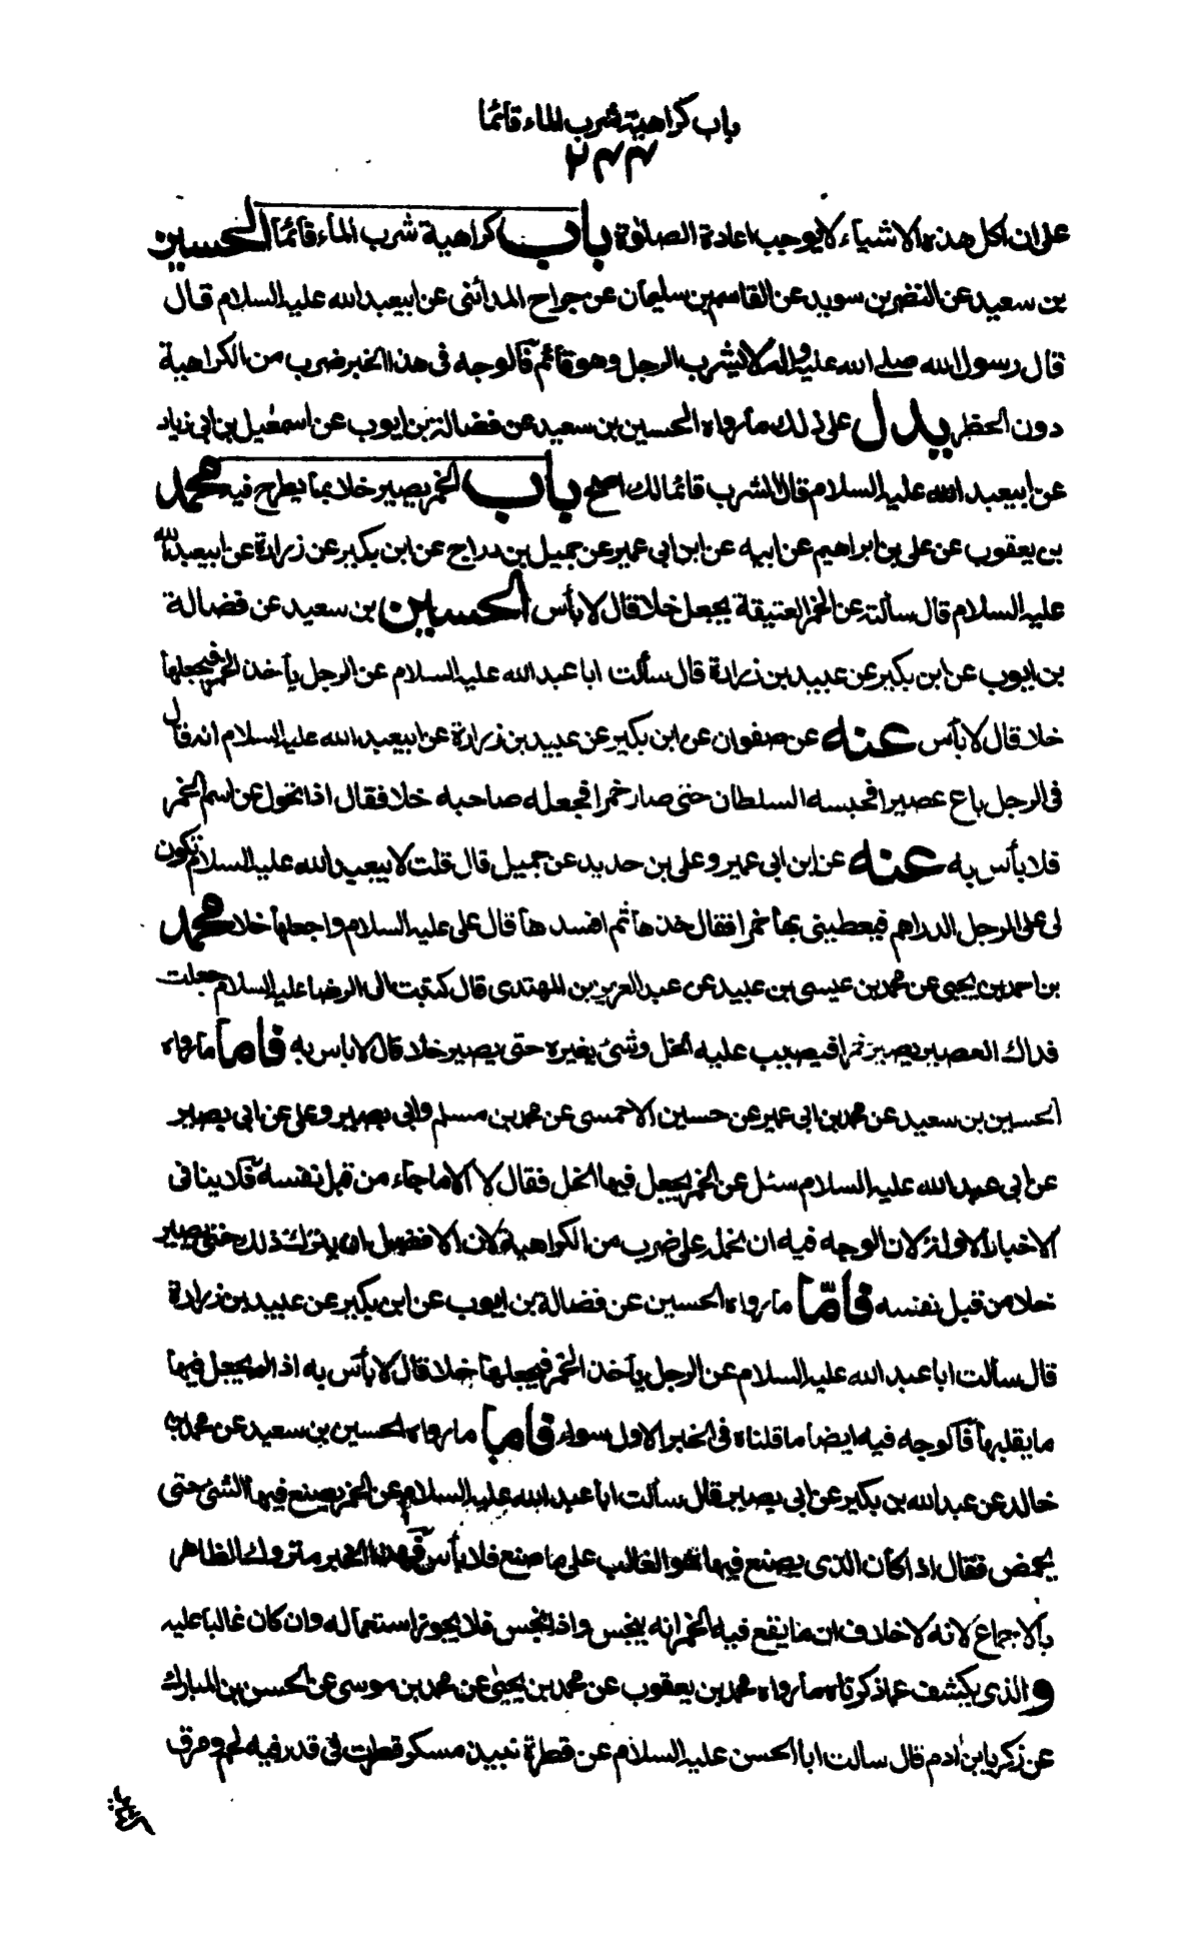 باب كراهية شرب الماء قائما
٢٤٤
على ان اكل هذه الاشياء لا يوجب اعادة الصلوة باب كراهية شرب الماء قائما الحسين
بن سعيد عن النضر بن سويد عن القاسم بن سليمان عن جراح المدائنى عن ابيعبد الله عليه السلام قال
قال رسول الله صلى الله عليه واله لا يشرب الرجل وهو قائم فالوجه فى هذا الخبر ضرب من الكراهية
دون الحظر يدل على ذلك ما رواه الحسين بن سعيد عن فضالة بن ايوب عن اسمعيل بن ابى زياد
عن ابيعبد الله عليه السلام قال الشرب قائما لك اصح باب الخمر يصير خلا بما يطرح فيه محمد
بن يعقوب عن على بن ابراهيم عن ابيه عن ابن ابى عمير عن جميل بن دراج عن ابن بكير عن زرارة عن ابيعبد الله
عليه السلام قال سألته عن الخمر العتيقة يجعل خلا قال لا بأس الحسين بن سعيد عن فضالة
بن ايوب عن ابن بكير عن عبيد بن زرارة قال سألت ابا عبد الله عليه السلام عن الرجل يأخذ الخمر فيجعلها
خلا قال لا بأس عنه عن صفوان عن ابن بكير عن عبيد بن زرارة عن ابيعبد الله عليه السلام انه قال
فى الرجل باع عصيرا فحبسه السلطان حتى صار خمرا فجعله صاحبه خلا فقال اذا تحول عن اسم الخمر
فلا بأس به عنه عن ابن ابى عمير وعلى بن حديد عن جميل قال قلت لابيعبد الله عليه السلام تكون
لى على الرجل الدراهم فيعطينى بها خمرا فقال خذها ثم افسدها قال على عليه السلام واجعلها خلا محمد
بن احمد بن يحيى عن محمد بن عيسى بن عبيد عن عبد العزيز بن المهتدى قال كتبت الى الرضا عليه السلام جعلت
فداك العصير يصير خمرا فيصب عليه الخل وشئ يغيره حتى يصير خلا قال لا باس به فاما ما رواه
الحسين بن سعيد عن محمد بن ابى عمير عن حسين الاحمسى عن محمد بن مسلم وابى بصير وعلى عن ابى بصير
عن ابى عبد الله عليه السلام سئل عن الخمر يجعل فيها الخل فقال لا الا ما جاء من قبل نفسه فلا ينافى
الاخبار الاولة لان الوجه فيه ان نحمله على ضرب من الكراهية لان الافضل ان يترك ذلك حتى يصير
خلا من قبل نفسه فامّا ما رواه الحسين عن فضالة بن ايوب عن ابن بكير عن عبيد بن زرارة
قال سألت ابا عبد الله عليه السلام عن الرجل يأخذ الخمر فيجعلها خلا قال لا بأس به اذا لم يجعل فيها
ما يقلبها فالوجه فيه ايضا ما قلناه فى الخبر الاول سواء فاما ما رواه الحسين بن سعيد عن محمد بن
خالد عن عبد الله بن بكير عن ابى بصير قال سألت ابا عبد الله عليه السلام عن الخمر يصنع فيها الشئ حتى
يحمض فقال اذا كان الذى يصنع فيها هو الغالب على ما صنع فلا بأس فهذا الخبر متروك الظاهر
بالاجماع لانه لا خلاف ان ما يقع فيه الخمر انه ينجس واذا نجس فلا يجوز استعماله وان كان غالبا عليه
و الذى يكشف عما ذكرناه ما رواه محمد بن يعقوب عن محمد بن يحيى عن محمد بن موسى عن الحسن بن المبارك
عن زكريا بن ادم قال سالت ابا الحسن عليه السلام عن قطرة نبيذ مسكر قطرت فى قدر فيه لحم ومرق